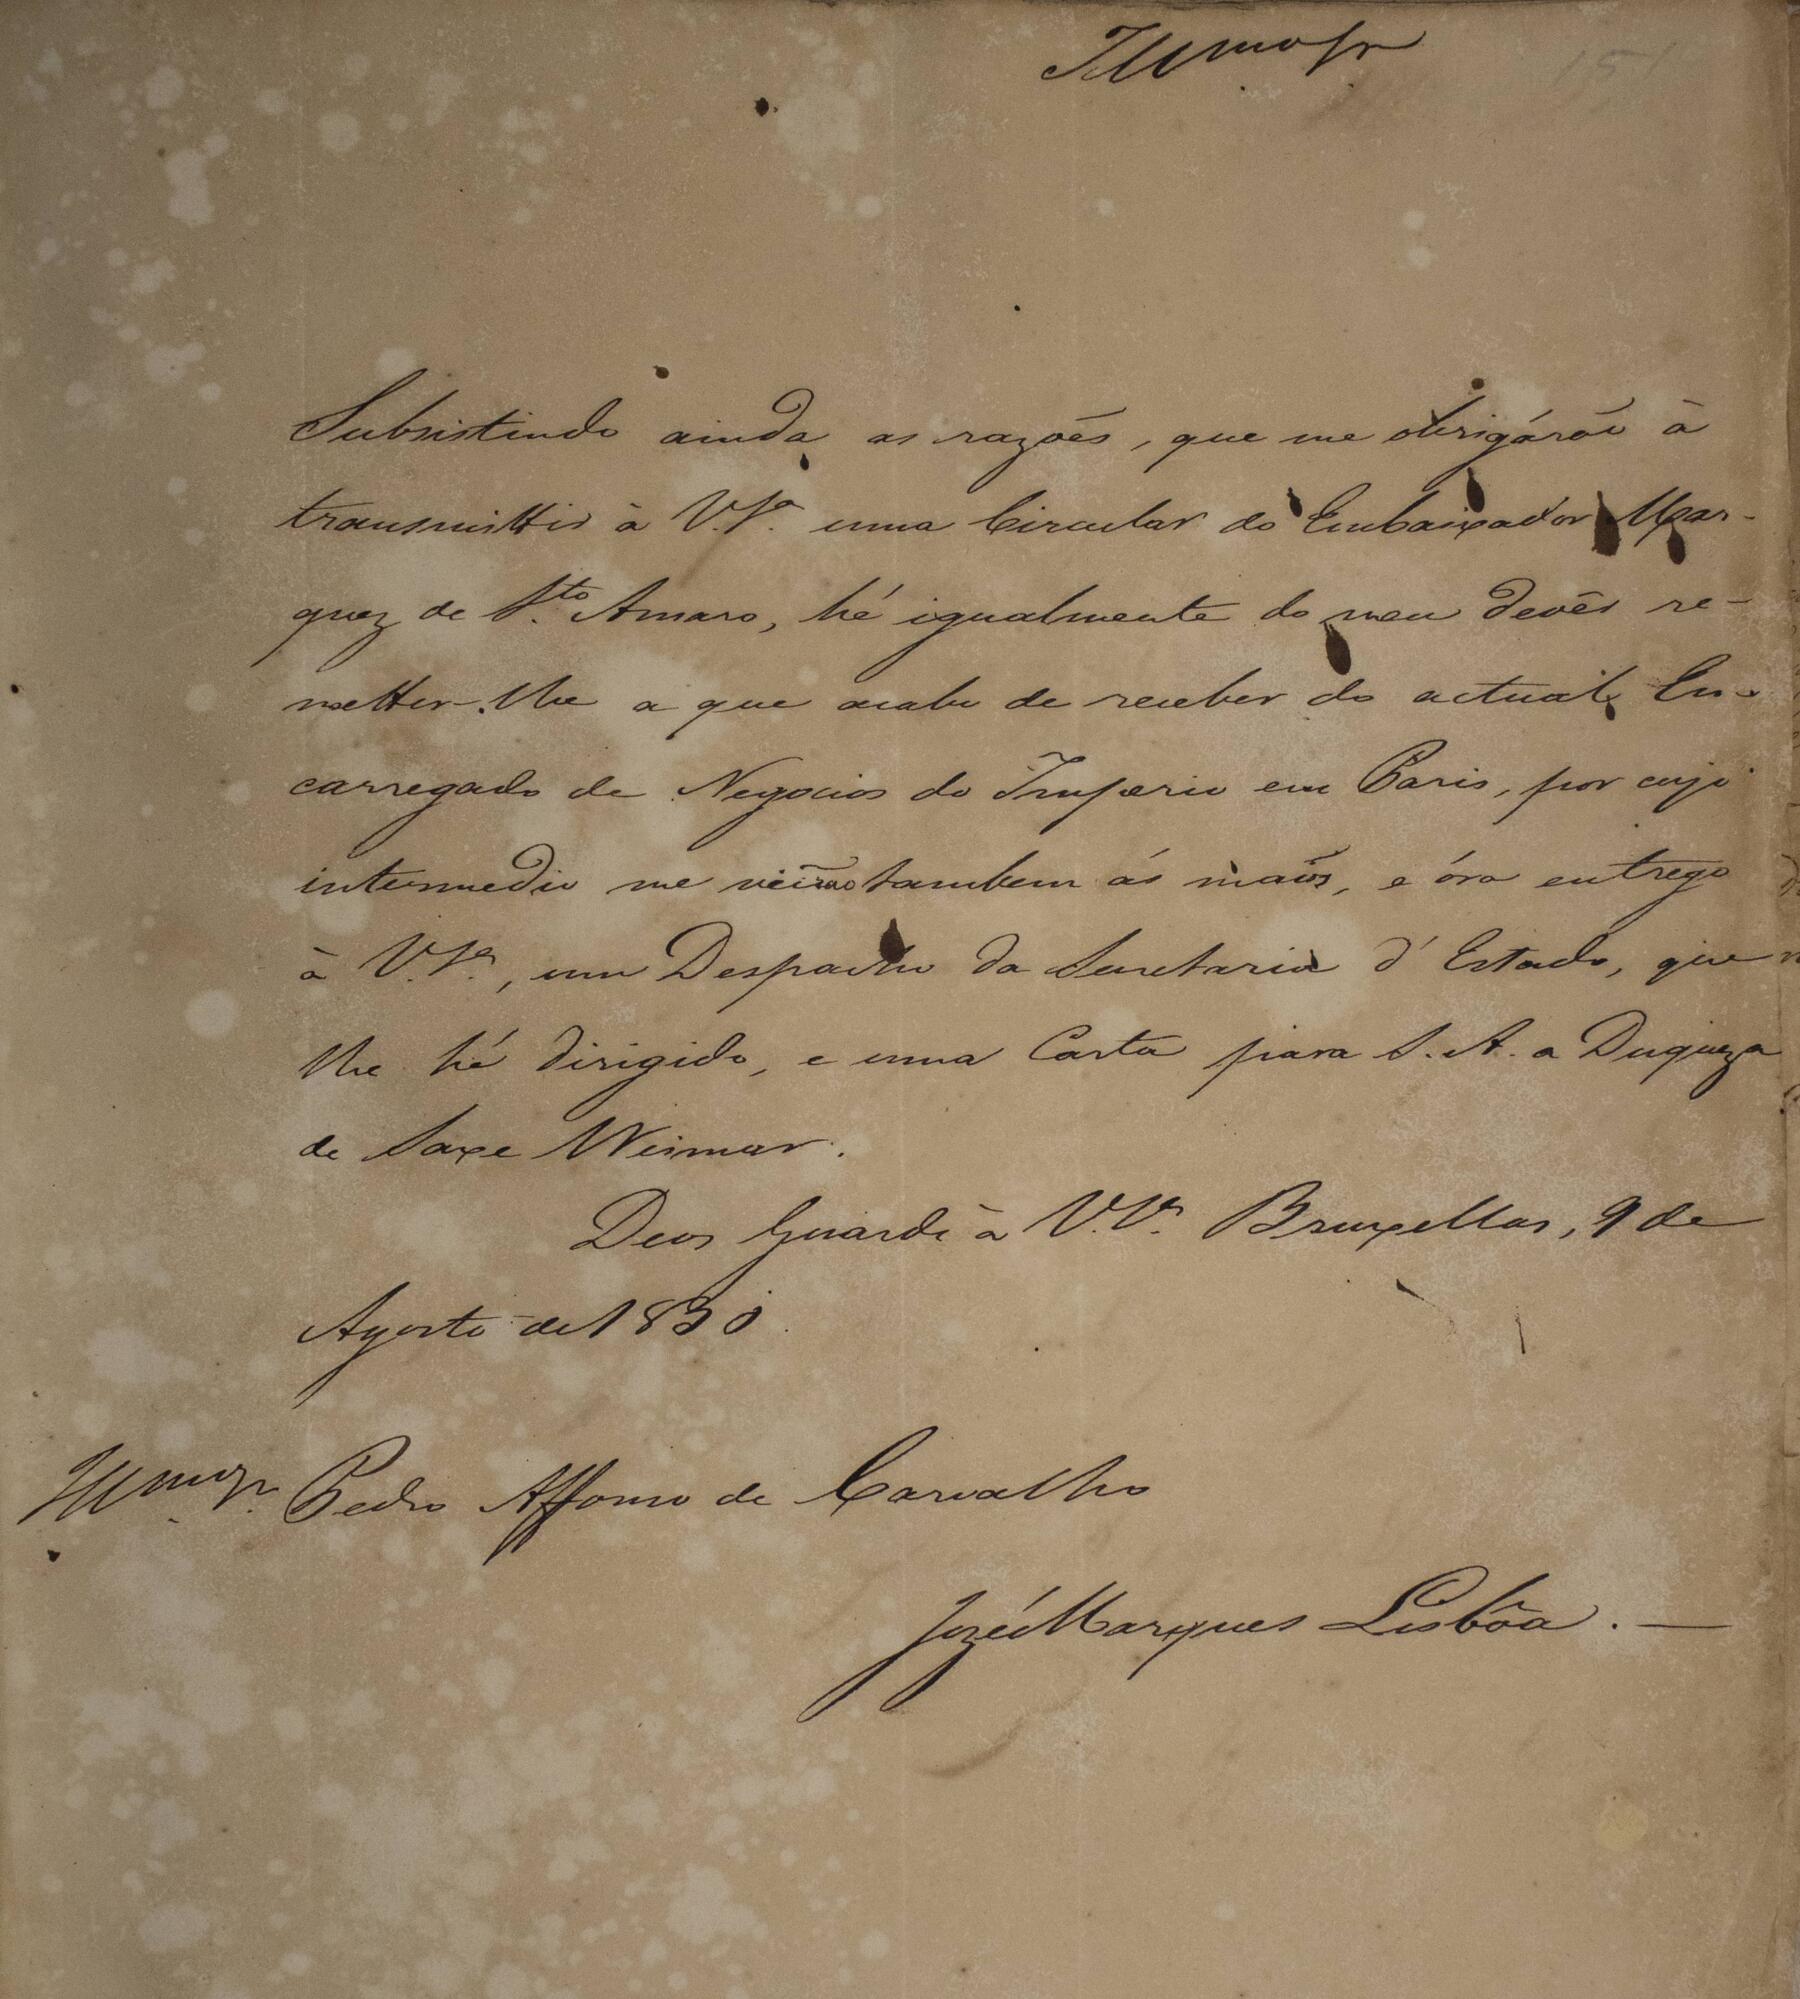 Illmo Sr
151
Subsistindo ainda as razões, que me obrigárão à
transmittir à V.Sª. uma Circular do Embaixador Mar-
quez de Sto. Amaro, hé igualmente do meu devêr re-
metter-lhe a que acabo de receber do actual En-
carregado de Negocios do Imperio em Paris, por cujo
intermedio me veírão tambem ás mãos, e óra entrego
à V.Sª., um Despacho da Secretaria d'Estado, que
lhe hé dirigido, e uma Carta para S.A. a Duqueza
de Saxe Weimar.
Deos Guarde à V.Sª. Bruxellas, 9 de
Agosto de 1830.
Illmo Sr. Pedro Affonso de Carvalho
Jozé Marques Lisbôa. —